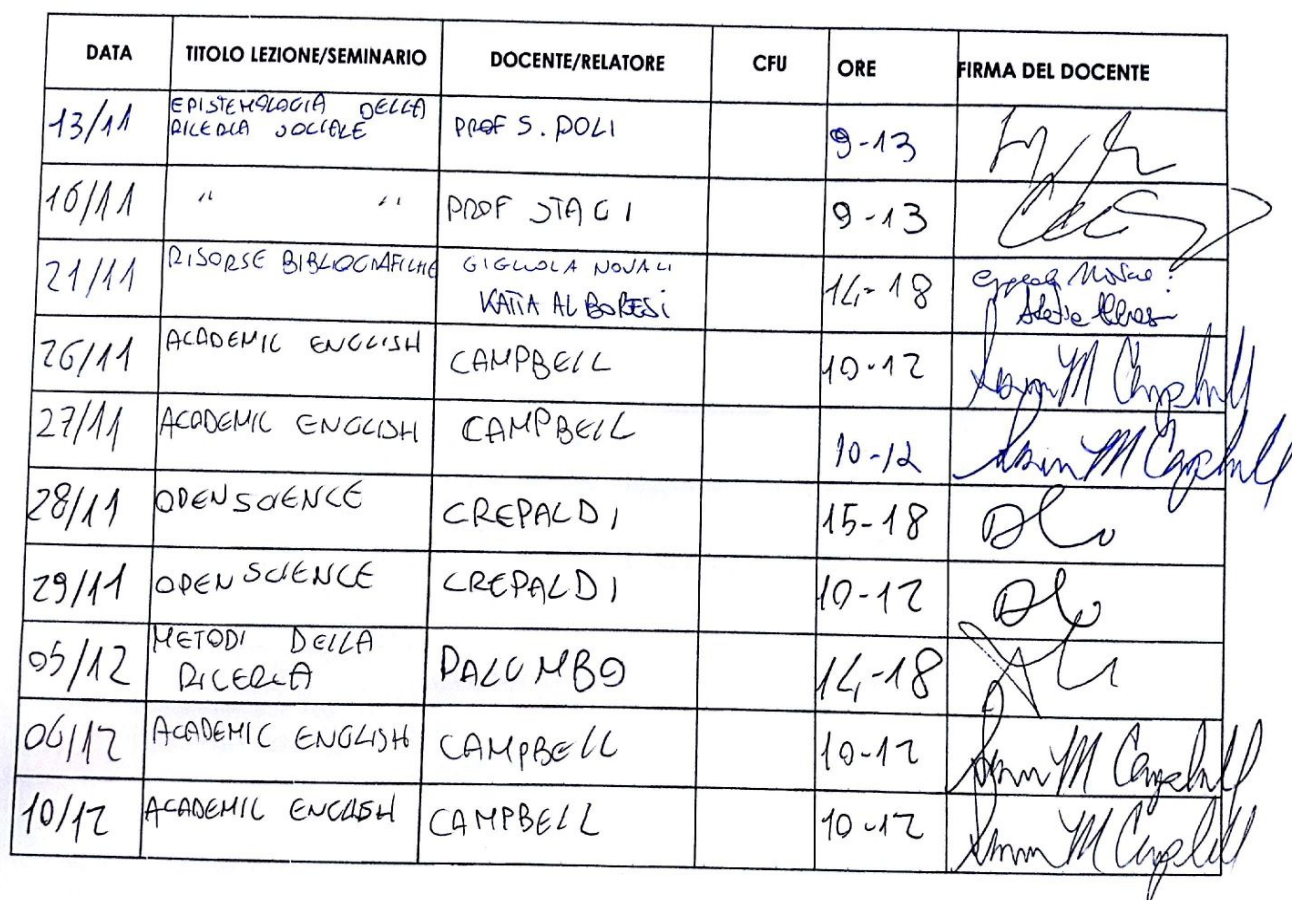 DATA TITOLO LEZIONE/SEMINARIO DOCENTE/RELATORE CFU ORE FIRMA DEL DOCENTE
13/11 EPISTEMOLOGIA DELLA RICERCA SOCIALE PROF S. POLI 9-13
16/11 " " PROF STAGI 9-13
21/11 RISORSE BIBLIOGRAFICHE GIGLIOLA NOVALI KATIA ALBORESI 14-18
26/11 ACADEMIC ENGLISH CAMPBELL 10-12
27/11 ACADEMIC ENGLISH CAMPBELL 10-12
28/11 OPEN SCIENCE CREPALDI 15-18
29/11 OPEN SCIENCE CREPALDI 10-12
05/12 METODI DELLA RICERCA PALUMBO 14-18
06/12 ACADEMIC ENGLISH CAMPBELL 10-12
10/12 ACADEMIC ENGLISH CAMPBELL 10-12